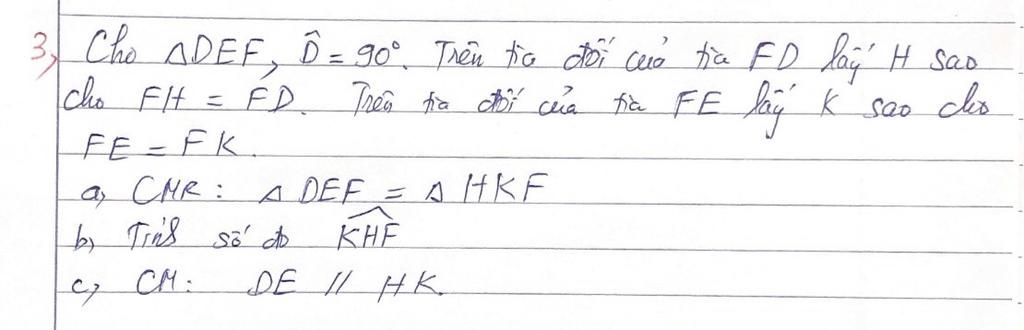 3, Cho ΔDEF, D̂ = 90°. Trên tia đối của tia FD lấy H sao
cho FH = FD. Trên tia đối của tia FE lấy K sao cho
FE = FK.
a, CMR: Δ DEF = Δ HKF
b, Tính số đo \widehat{KHF}
c, CM: DE // HK.